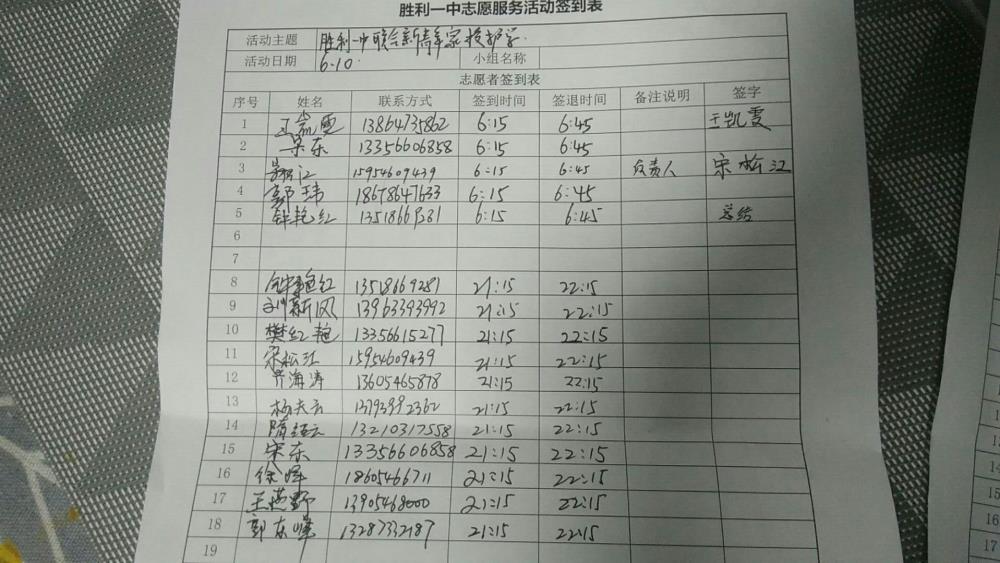 胜利一中志愿服务活动签到表
活动主题 胜利一中联合新青年家校护学
活动日期 6.10. 小组名称
志愿者签到表
序号 姓名 联系方式 签到时间 签退时间 备注说明 签字
1 13864735862 6:15 6:45 王凯雯
2 宋东 13356606858 6:15 6:45
3 宋松江 15954609439 6:15 6:45 负责人 宋松江
4 郭玮 18678647633 6:15 6:45
5 钟艳红 6:15 6:45 总结
6
7
8 钟艳红 13518669281 21:15 22:15
9 刘新风 13963393992 21:15 22:15
10 樊红艳 13356615277 21:15 22:15
11 宋松江 15954609439 21:15 22:15
12 齐海涛 13605465878 21:15 22:15
13 杨夫云 13793992362 21:15 22:15
14 隋 13210317558 21:15 22:15
15 宋东 13356606858 21:15 22:15
16 徐峰 18605466711 21:15 22:15
17 王燕野 13905468000 21:15 22:15
18 郭东峰 13287332187 21:15 22:15
19
15
16
17